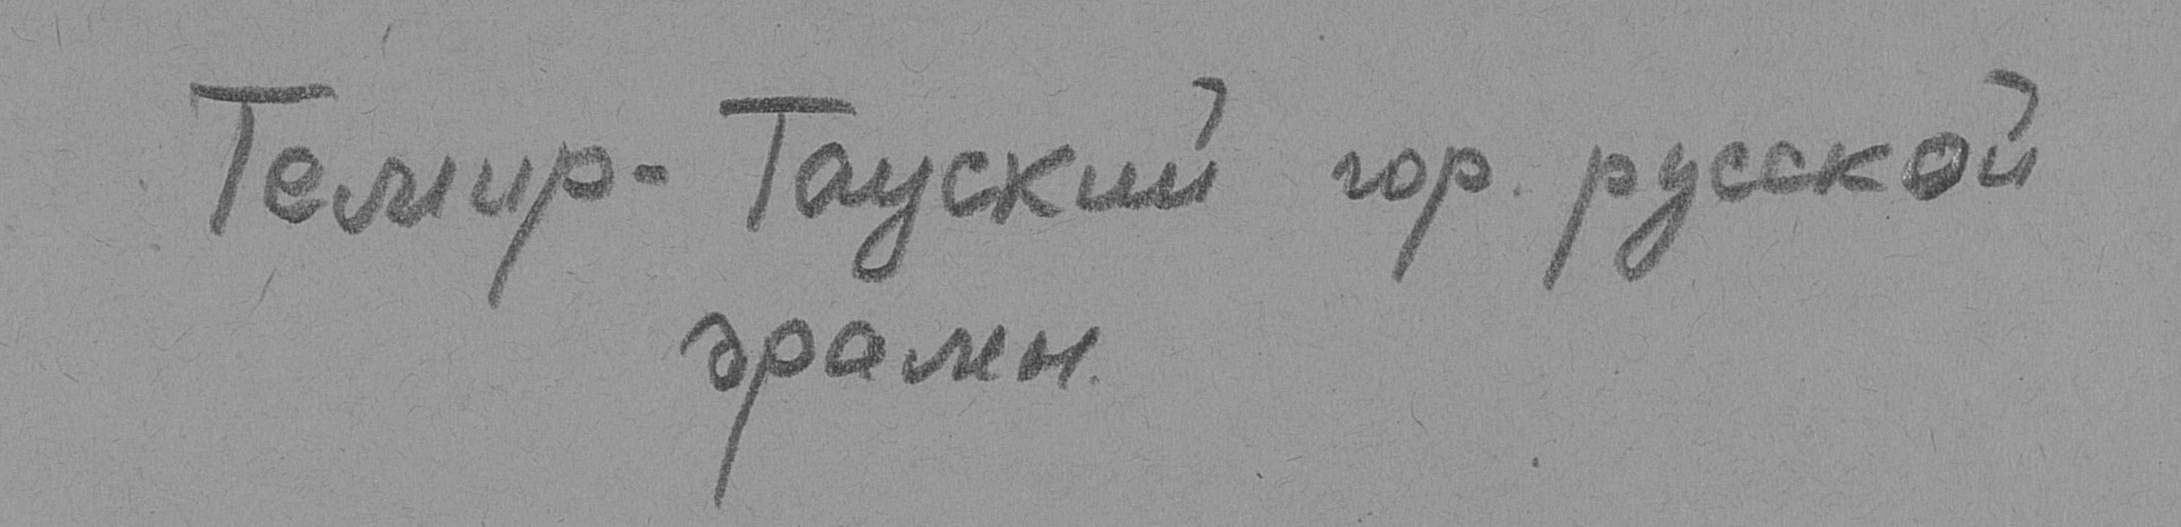 Темир-Тауский гор. русской
драмы.